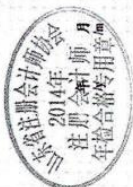 山东省注册会计师协会
2014年
注册会计师
年检合格专用章
月